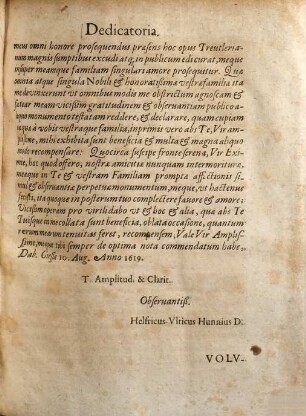 Dedicatoria.
meus omni honore prosequendus præsens hoc opus Treutleria-
num magnis sumptibus excudi atq; in publicum edi curat, meque
inopere meamque familiam singulari amore prosequitur. Qua
omnia atque singula Nobili & honoratissima vestra familia ita
me devinxerunt vt omnibus modis me obstrictum agnoscam &
fatear meam vicissim gratitudinem & observantiam publico a-
monumento testatam reddere, & declarare, quam cupiam
usque à vobis vestraque familia, inprimis vero abs Te, Vir am-
plissime, mihi exhibita sunt beneficia & multa & magna aliquo
modo recompensare: Quocirca suscipe fronte serena, Vir Exi-
mie, hoc quod offero, nostræ amicitiæ nunquam intermorituræ,
meæque in Te & vestram Familiam promptæ affectionis si-
& observantiæ perpetuæ monumentum, meque, vt hactenus
fecisti, ita quoque in posterum tuo complectere favore & amore:
Vicissim operam pro virili dabo vt & hoc & alia, quæ abs Te
Tuisque in me collata sunt beneficia, oblata occasione, quantum
rerum mearum tenuitas feret, recompensem, Vale Vir Amplis-
sime, meque tibi semper de optima nota commendatum habe,
Dab. Gissa 10. Aug. Anno 1619.
T. Amplitud. & Clarit.
Observantiss.
Helfricus-Vlricus Hunnius D.
VOLV-